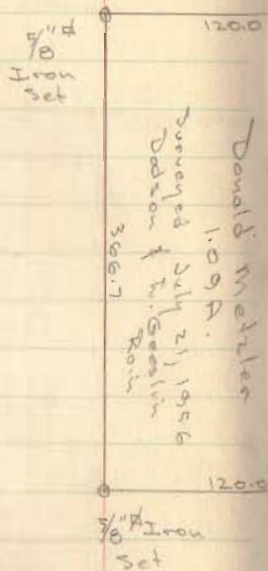 120.0
5/8"⌀
Iron
Set
Donald Metzler
1.09 A.
Surveyed July 21, 1956
Dodson &
Rain
366.7
120.0
5/8"⌀ Iron
Set